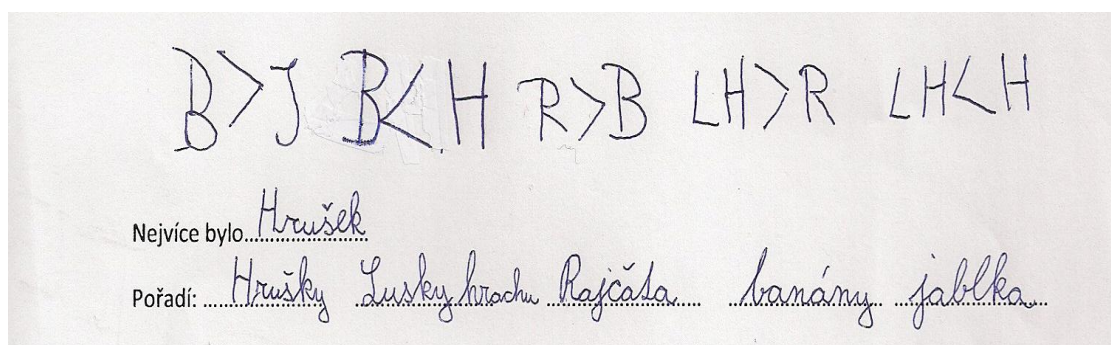 B>J B<H R>B LH>R LH<H
Nejvíce bylo Hrušek
Pořadí: Hrušky Lusky hrachu Rajčata banány jablka